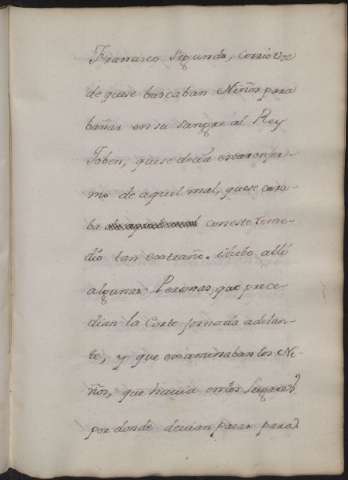 Francisco Segundo, corrió voz
de que se buscaban Niños para
bañar en su sangre al Rey
Joben, que se decia estar enfer
mo de aquel mal, que se cura
ba con este reme-
dio tan extraño. Hubo allí
algunas Personas, que prece
dian la Corte jornada adelan
te, y que examinaban los Ni-
ños, que havia en los Lugares
por donde devian pasar para